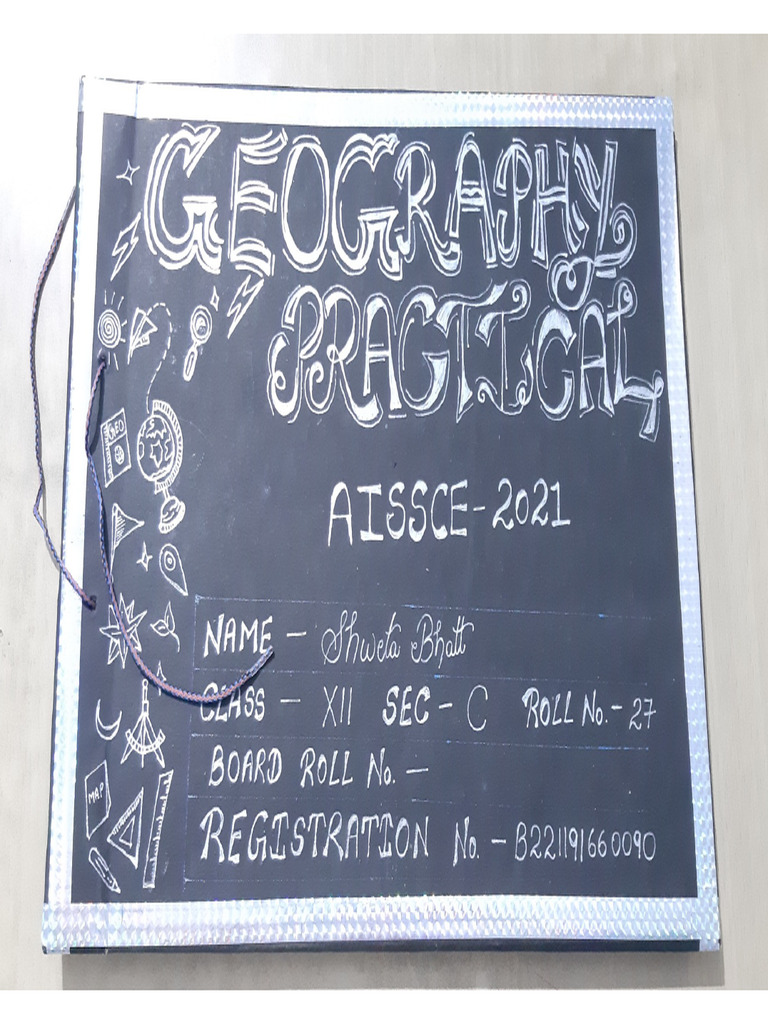 GEOGRAPHY
PRACTICAL
GEO
AISSCE-2021
NAME - Shweta Bhatt
CLASS - XII SEC - C ROLL No. - 27
BOARD ROLL No. -
MAP
REGISTRATION No. - B221191660090